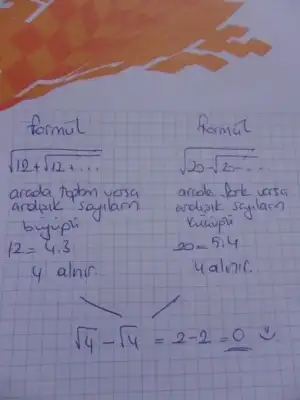 formül
√12+√12+...
arada toplam varsa
ardışık sayıların
büyüğü
12 = 4.3
4 alınır.
formül
√20-√20-...
arada fark varsa
ardışık sayıların
küçüğü
20 = 5.4
4 alınır.
√4 - √4 = 2-2 = 0